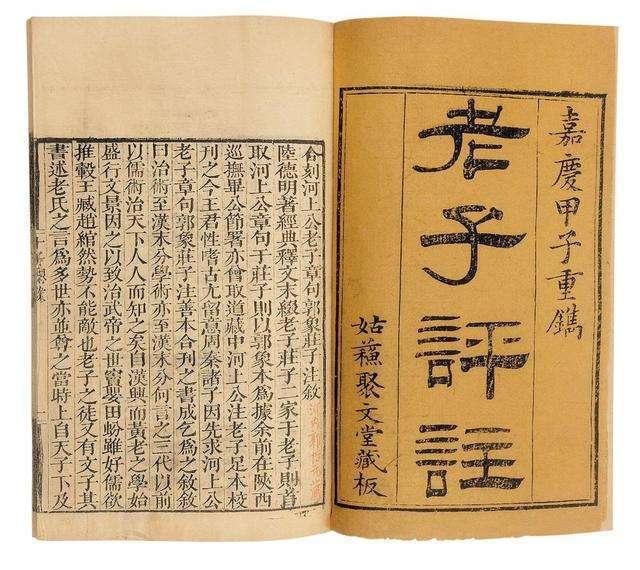 嘉慶甲子重鐫
老子評註
姑蘓聚文堂藏板
合刻河上公老子章句郭象莊子注敘
陸德明著經典釋文末綴老子莊子二家于老子則首
取河上公章句于莊子則以郭象本為據余前在陝西
巡撫畢公節署亦曾取道藏中河上公注老子足本校
刊之今王君性耆古尤留意周秦諸子因先求河上公
老子章句郭象莊子注善本合刊之書成乞為之敘敘
曰治術至漢末分學術亦至漢末分何言之三代以前
以儒術治天下人人而知之矣自漢興而黃老之學始
盛行文景因之以致治武帝之世竇嬰田蚡雖好儒欲
推轂王臧趙綰然勢不能敵也老子之徒又有文子其
書述老氏之言為多世亦並尊之當時上自天子下及